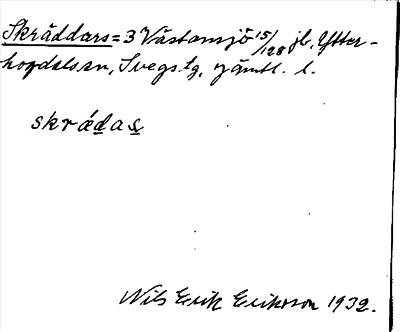 Skräddars = 3 Västansjö 15/128 jb, Ytter-
hogdals sn, Svegs tg, Jämtl. l.
skrǽd̲as̲
Nils Erik Eriksson 1932.